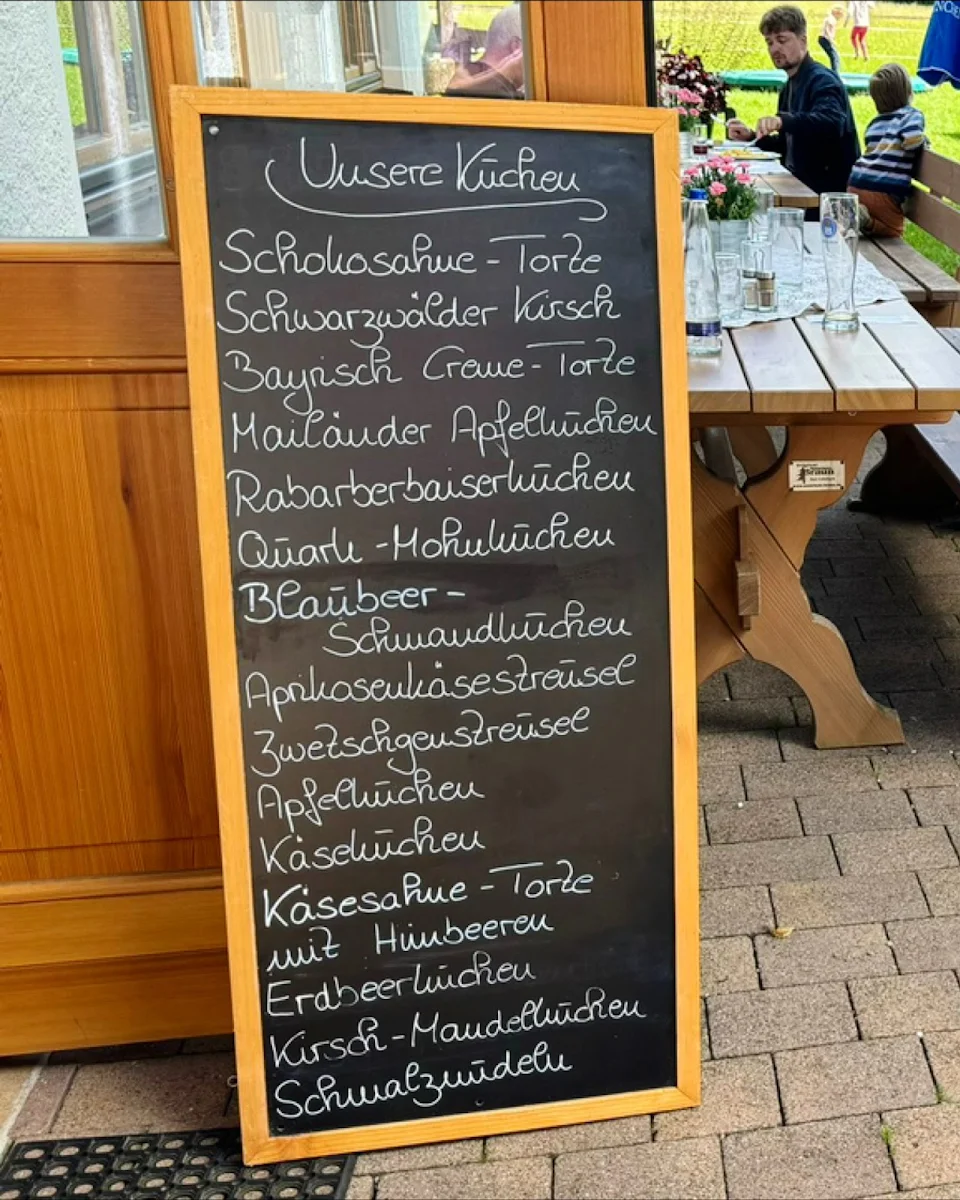 Unsere Kuchen
Schokosahne - Torte
Schwarzwälder Kirsch
Bayrisch Creme - Torte
Mailänder Apfelkuchen
Rabarberbaiserkuchen
Quark - Mohnkuchen
Blaubeer -
Schmandkuchen
Aprikosenkäsestreusel
Zwetschgenstreusel
Apfelkuchen
Käsekuchen
Käsesahne - Torte
mit Himbeeren
Erdbeerkuchen
Kirsch - Mandelkuchen
Schmalznudeln